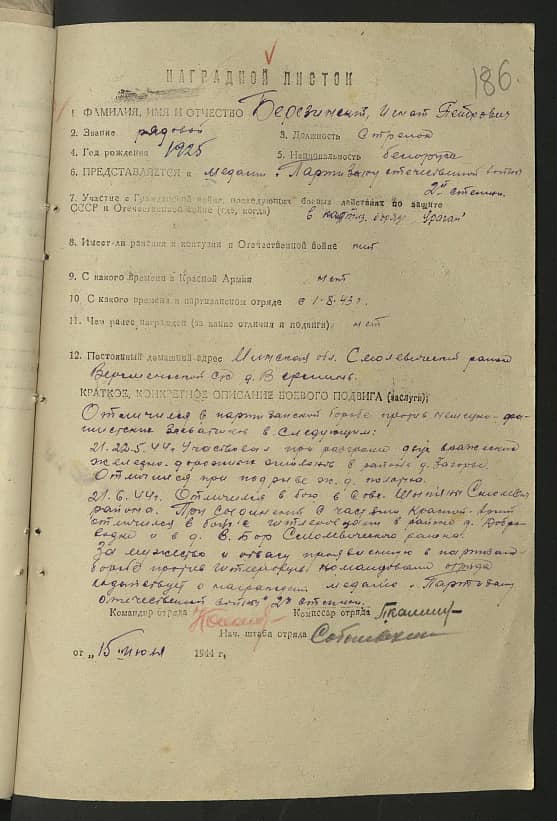 186.
НАГРАДНОЙ ЛИСТОК
1. ФАМИЛИЯ, ИМЯ И ОТЧЕСТВО Березинский, Игнат Петрович
2. Звание рядовой 3. Должность Стрелок
4. Год рождения 1925 5. Национальность белорус
6. ПРЕДСТАВЛЯЕТСЯ к медали „Партизану отечественной войны"
2й степени.
7. Участие в Гражданской войне, последующих боевых действиях по защите
СССР и Отечественной войне (где, когда) в партиз. отряде „Ураган"
8. Имеет-ли ранения и контузии в Отечественной войне нет
9. С какого времени в Красной Армии нет
10. С какого времени в партизанском отряде с 1-8.43 г.
11. Чем ранее награжден (за какие отличия и подвиги) нет
12. Постоянный домашний адрес Минская обл. Смолевичский район
д.
КРАТКОЕ, КОНКРЕТНОЕ ОПИСАНИЕ БОЕВОГО ПОДВИГА (заслуги):
Отличился в партизанской борьбе против немецко-фа-
шистских захватчиков в следующим:
21.22.5.44г. Участвовал при разгроме двух вражеских
железно-дорожных эшелонов в районе д. Загорье.
Отличился при подрыве ж.д. полотна.
21.6.44г. Отличился в бою в Смолев.
района. При соединении с частями Красной армии
отличился в борьбе с гитлеровцами в районе д.
и в д. В. Бор Смолевичского района.
За мужество и отвагу проявленную в партизан.
борьбе против гитлеровцев командование отряда
ходатайствует о награждении медалью „Партизану
отечественной войны" 2й степени.
Командир отряда Комиссар отряда
Нач. штаба отряда
от „15" июля 1944 г.